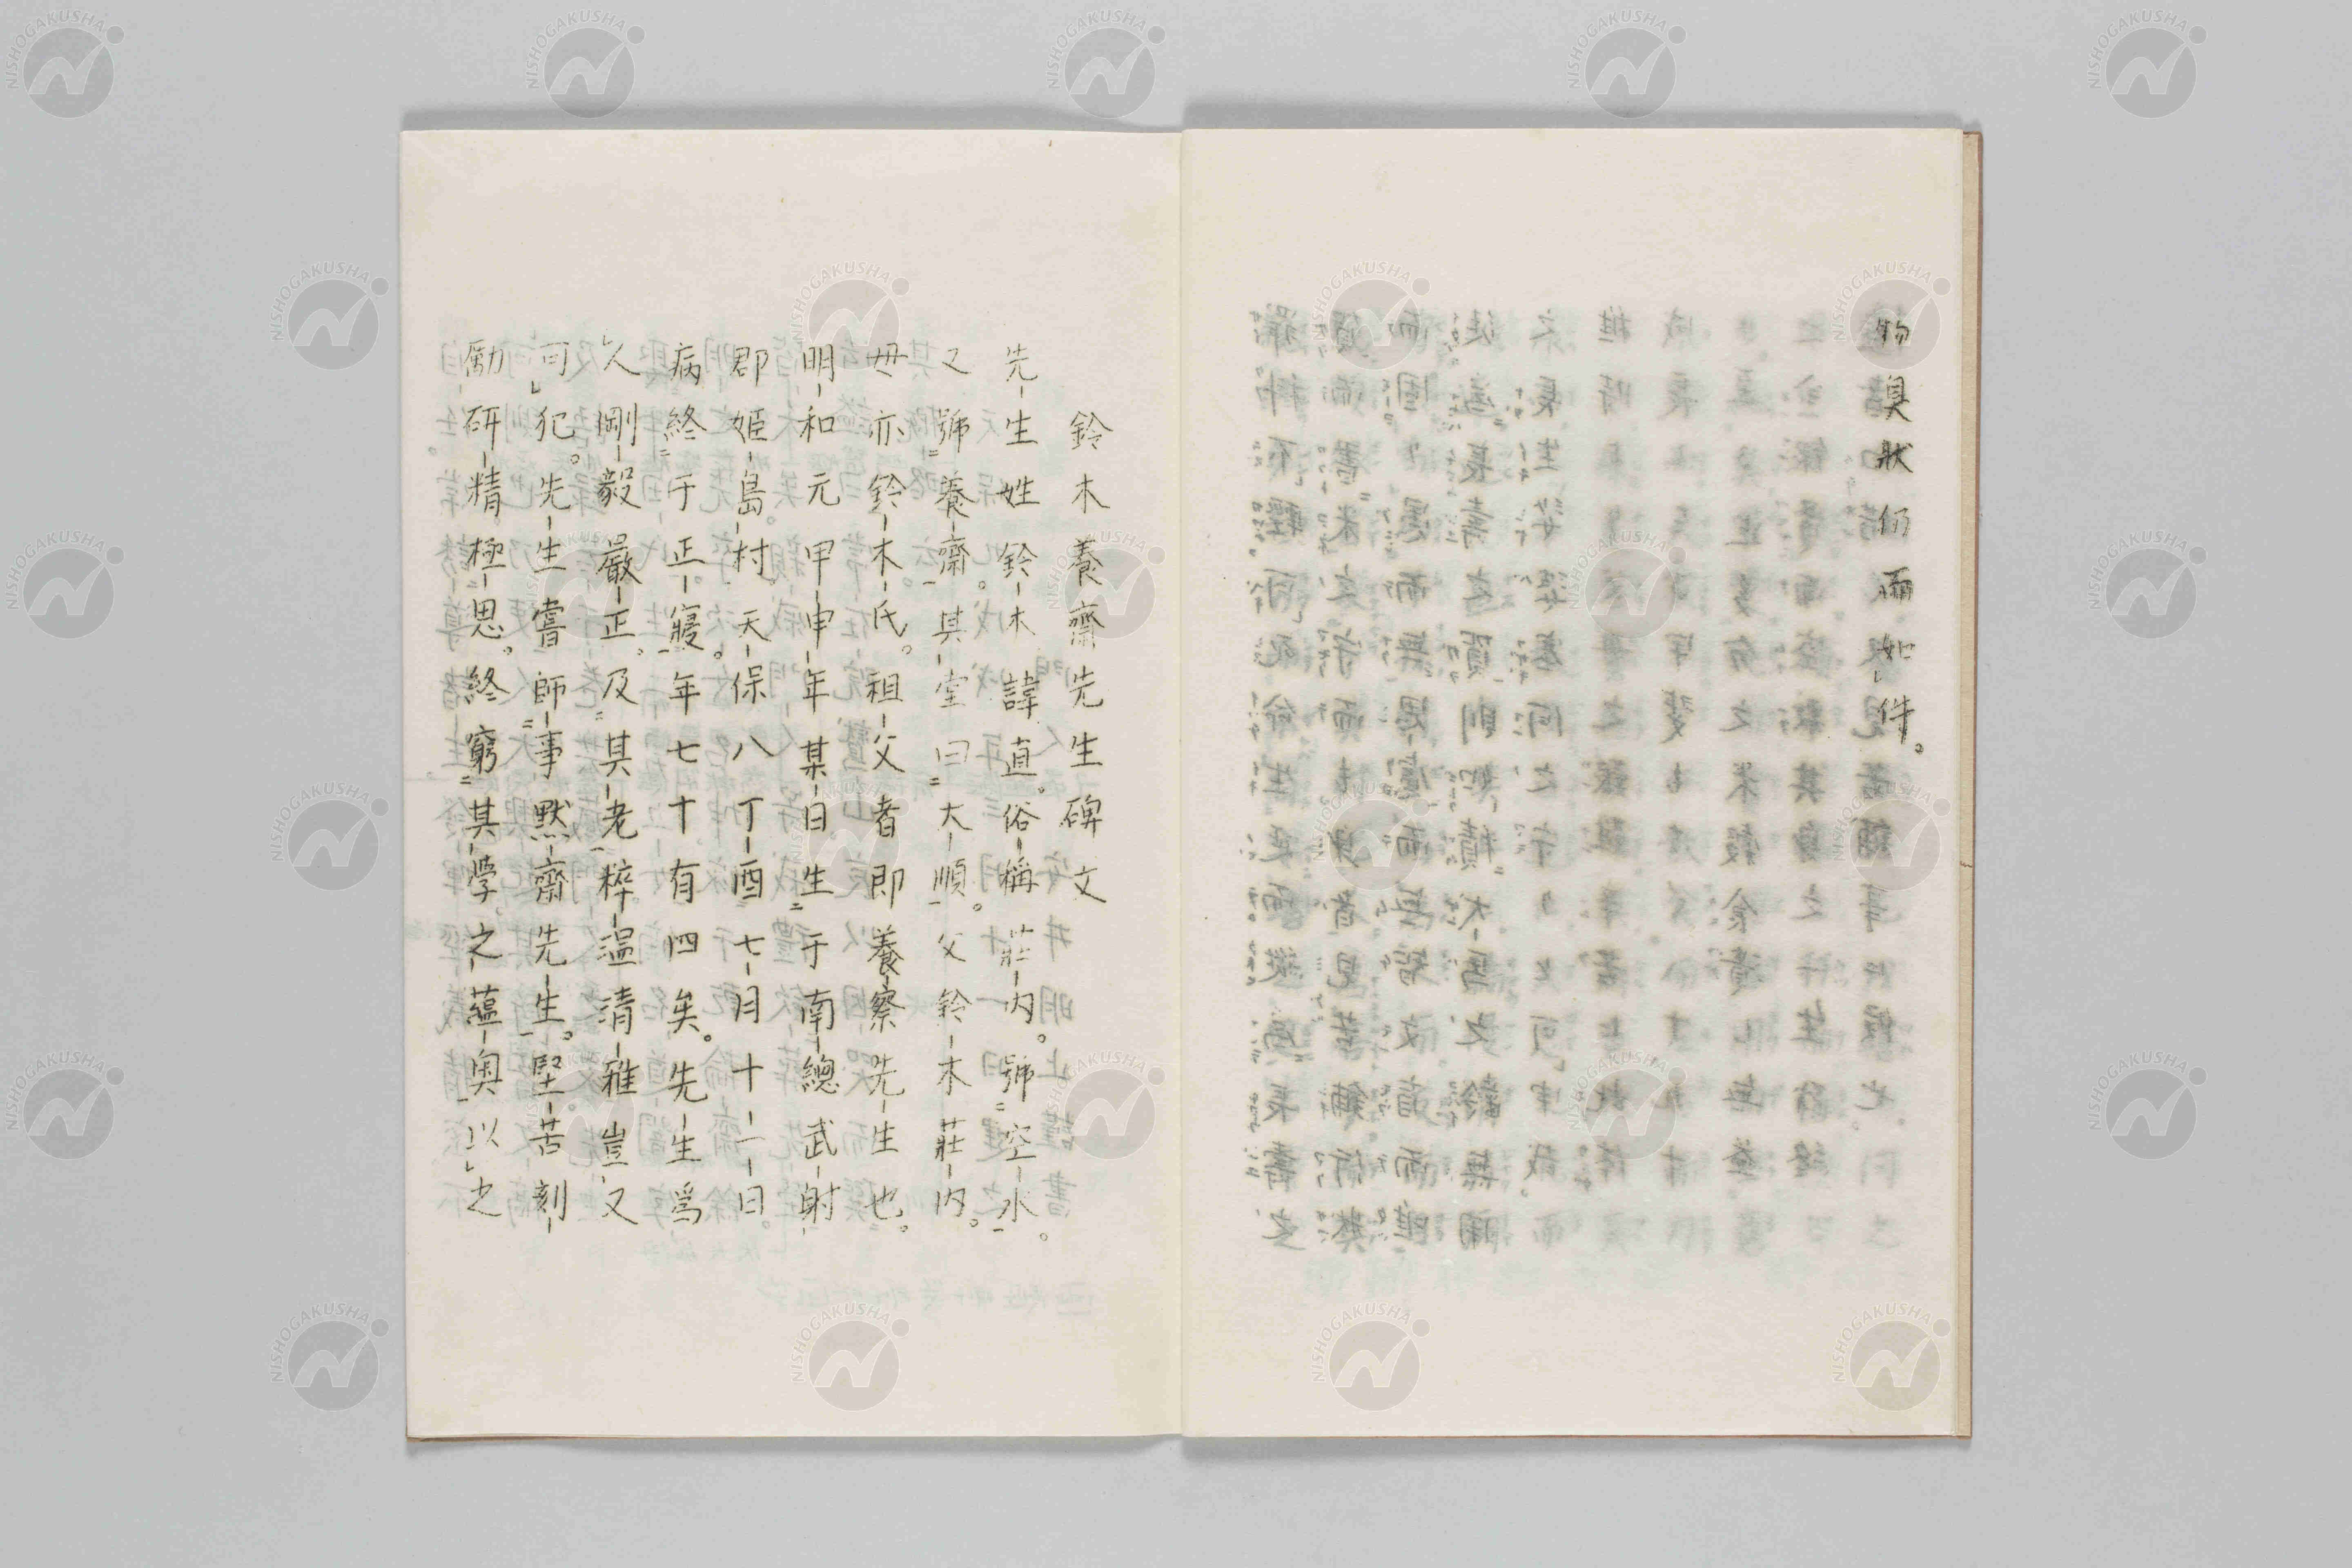 物臭狀仍而如件。
鈴木養齋先生碑文
先生姓鈴木諱直。俗稱莊内。號空水。
又號養齋。其堂曰大順。父鈴木莊内。
毋亦鈴木氏。祖父者即養察先生也。
明和元甲申年某日生于南總武射
郡姫島村天保八丁酉七月十一日。
病終于正寢。年七十有四矣。先生爲
人剛毅嚴正。及其老粹温清雅豈又
可犯。先生嘗師事默齋先生。堅苦刻
勵研精極思。終窮其學。之蘊奥以之
NISHOGAKUSHA